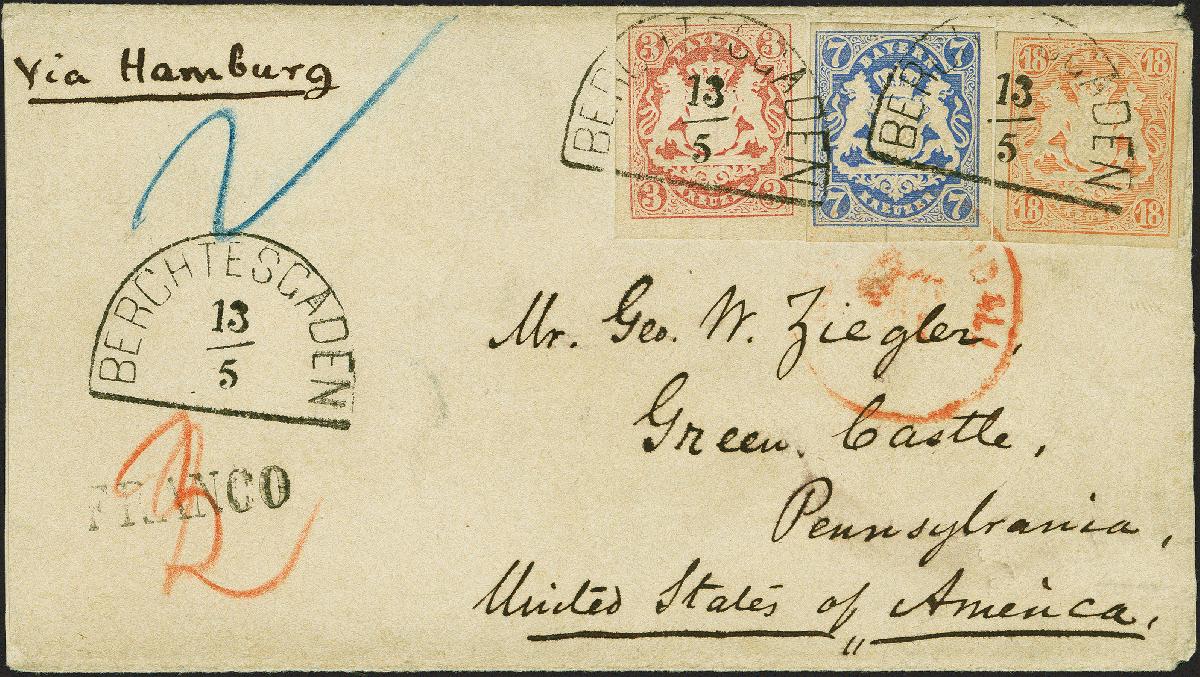 Via Hamburg
3 3
BAYERN
3 3
KREUZER
7 7
BAYERN
7 7
KREUZER
18 18
18 18
BERCHTESGADEN
13
5
BERCHTESGADEN
13
5
BERCHTESGADEN
13
5
FRANCO
Mr. Geo. W. Ziegler,
Green Castle,
Pennsylvania,
United States of America.